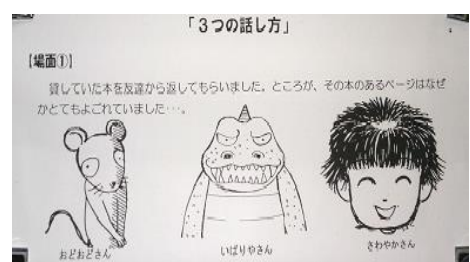 「３つの話し方」
【場面①】
貸していた本を友達から返してもらいました。ところが、その本のあるページはなぜ
かとてもよごれていました・・・。
おどおどさん
いばりやさん
さわやかさん